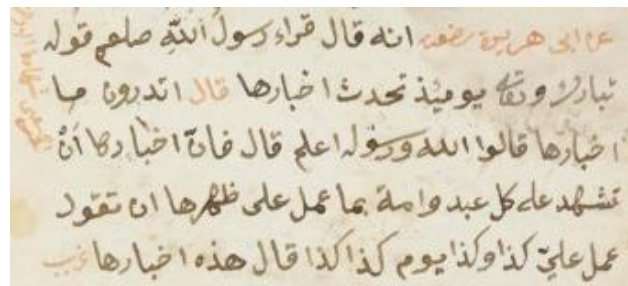 عن ابى هريرة رضعنه انه قال قراء رسول الله صلعم قوله
تبارك وتعالى يوميذ تحدث اخبارها قال اتدرون ما
اخبارها قالوا الله ورسوله اعلم قال فانّ اخبارها انْ
تشهد على كل عبد وامة بما عمل على ظهرها ان تقول
عمل عليّ كذا وكذا يوم كذا كذا قال هذه اخبارها غريب